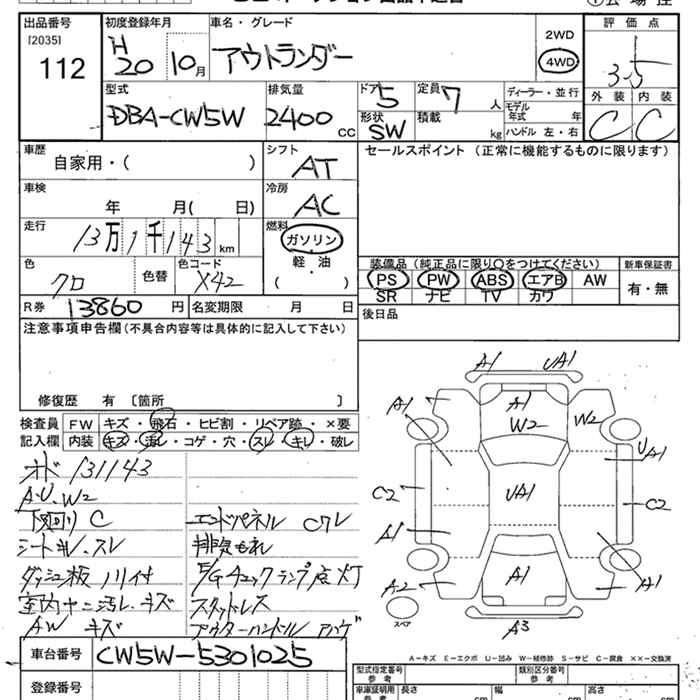 出品番号
[2035]
112
初度登録年月
H
20 10月
車名・グレード
アウトランダー
2WD
4WD
評価点
3.5
外装 内装
C C
型式
DBA-CW5W
排気量
2400 CC
ドア 5
形状 SW
定員 7 人
積載 kg
ディーラー・並行
モデル年式 年
ハンドル 左・右
車歴
自家用・( )
シフト
AT
セールスポイント (正常に機能するものに限ります)
車検
年 月( 日)
冷房
AC
走行
13万1千143km
燃料
ガソリン
軽・油
( )
色
クロ
色替
色コード
X42
装備品 (純正品に限り〇をつけてください)
PS PW ABS エアB AW
SR ナビ TV カワ
新車保証書
有・無
R券 13860円
名変期限 月 日
後日品
注意事項申告欄 (不具合内容等は具体的に記入して下さい)
修復歴 有 〔箇所 〕
検査員記入欄
FW キズ・飛石・ヒビ割・リペア跡・×要
内装 キズ・汚レ・コゲ・穴・スレ・キレ・破レ
メーター 131143
A.U.W2
下回り C
シートキレ.スレ
ダッシュ板ノリ付
室内ヤニ汚レ.キズ
AW キズ
エンドパネル Cワレ
排気もれ
E/Gチェックランプ点灯
スタッドレス
アウターハンドル ハゲ
A1 UA1
A1 A1 W2 W2
UA1
C2 UA1 C2
A1
A2 A1 A1
スペア
A3
A-キズ E-エクボ U-凹み W-補修跡 S-サビ C-腐食 ××-交換済
車台番号
CW5W-5301025
登録番号
型式指定番号
参考
類別区分番号
参考
車庫証明用
参考
長さ cm
幅 cm
高さ cm